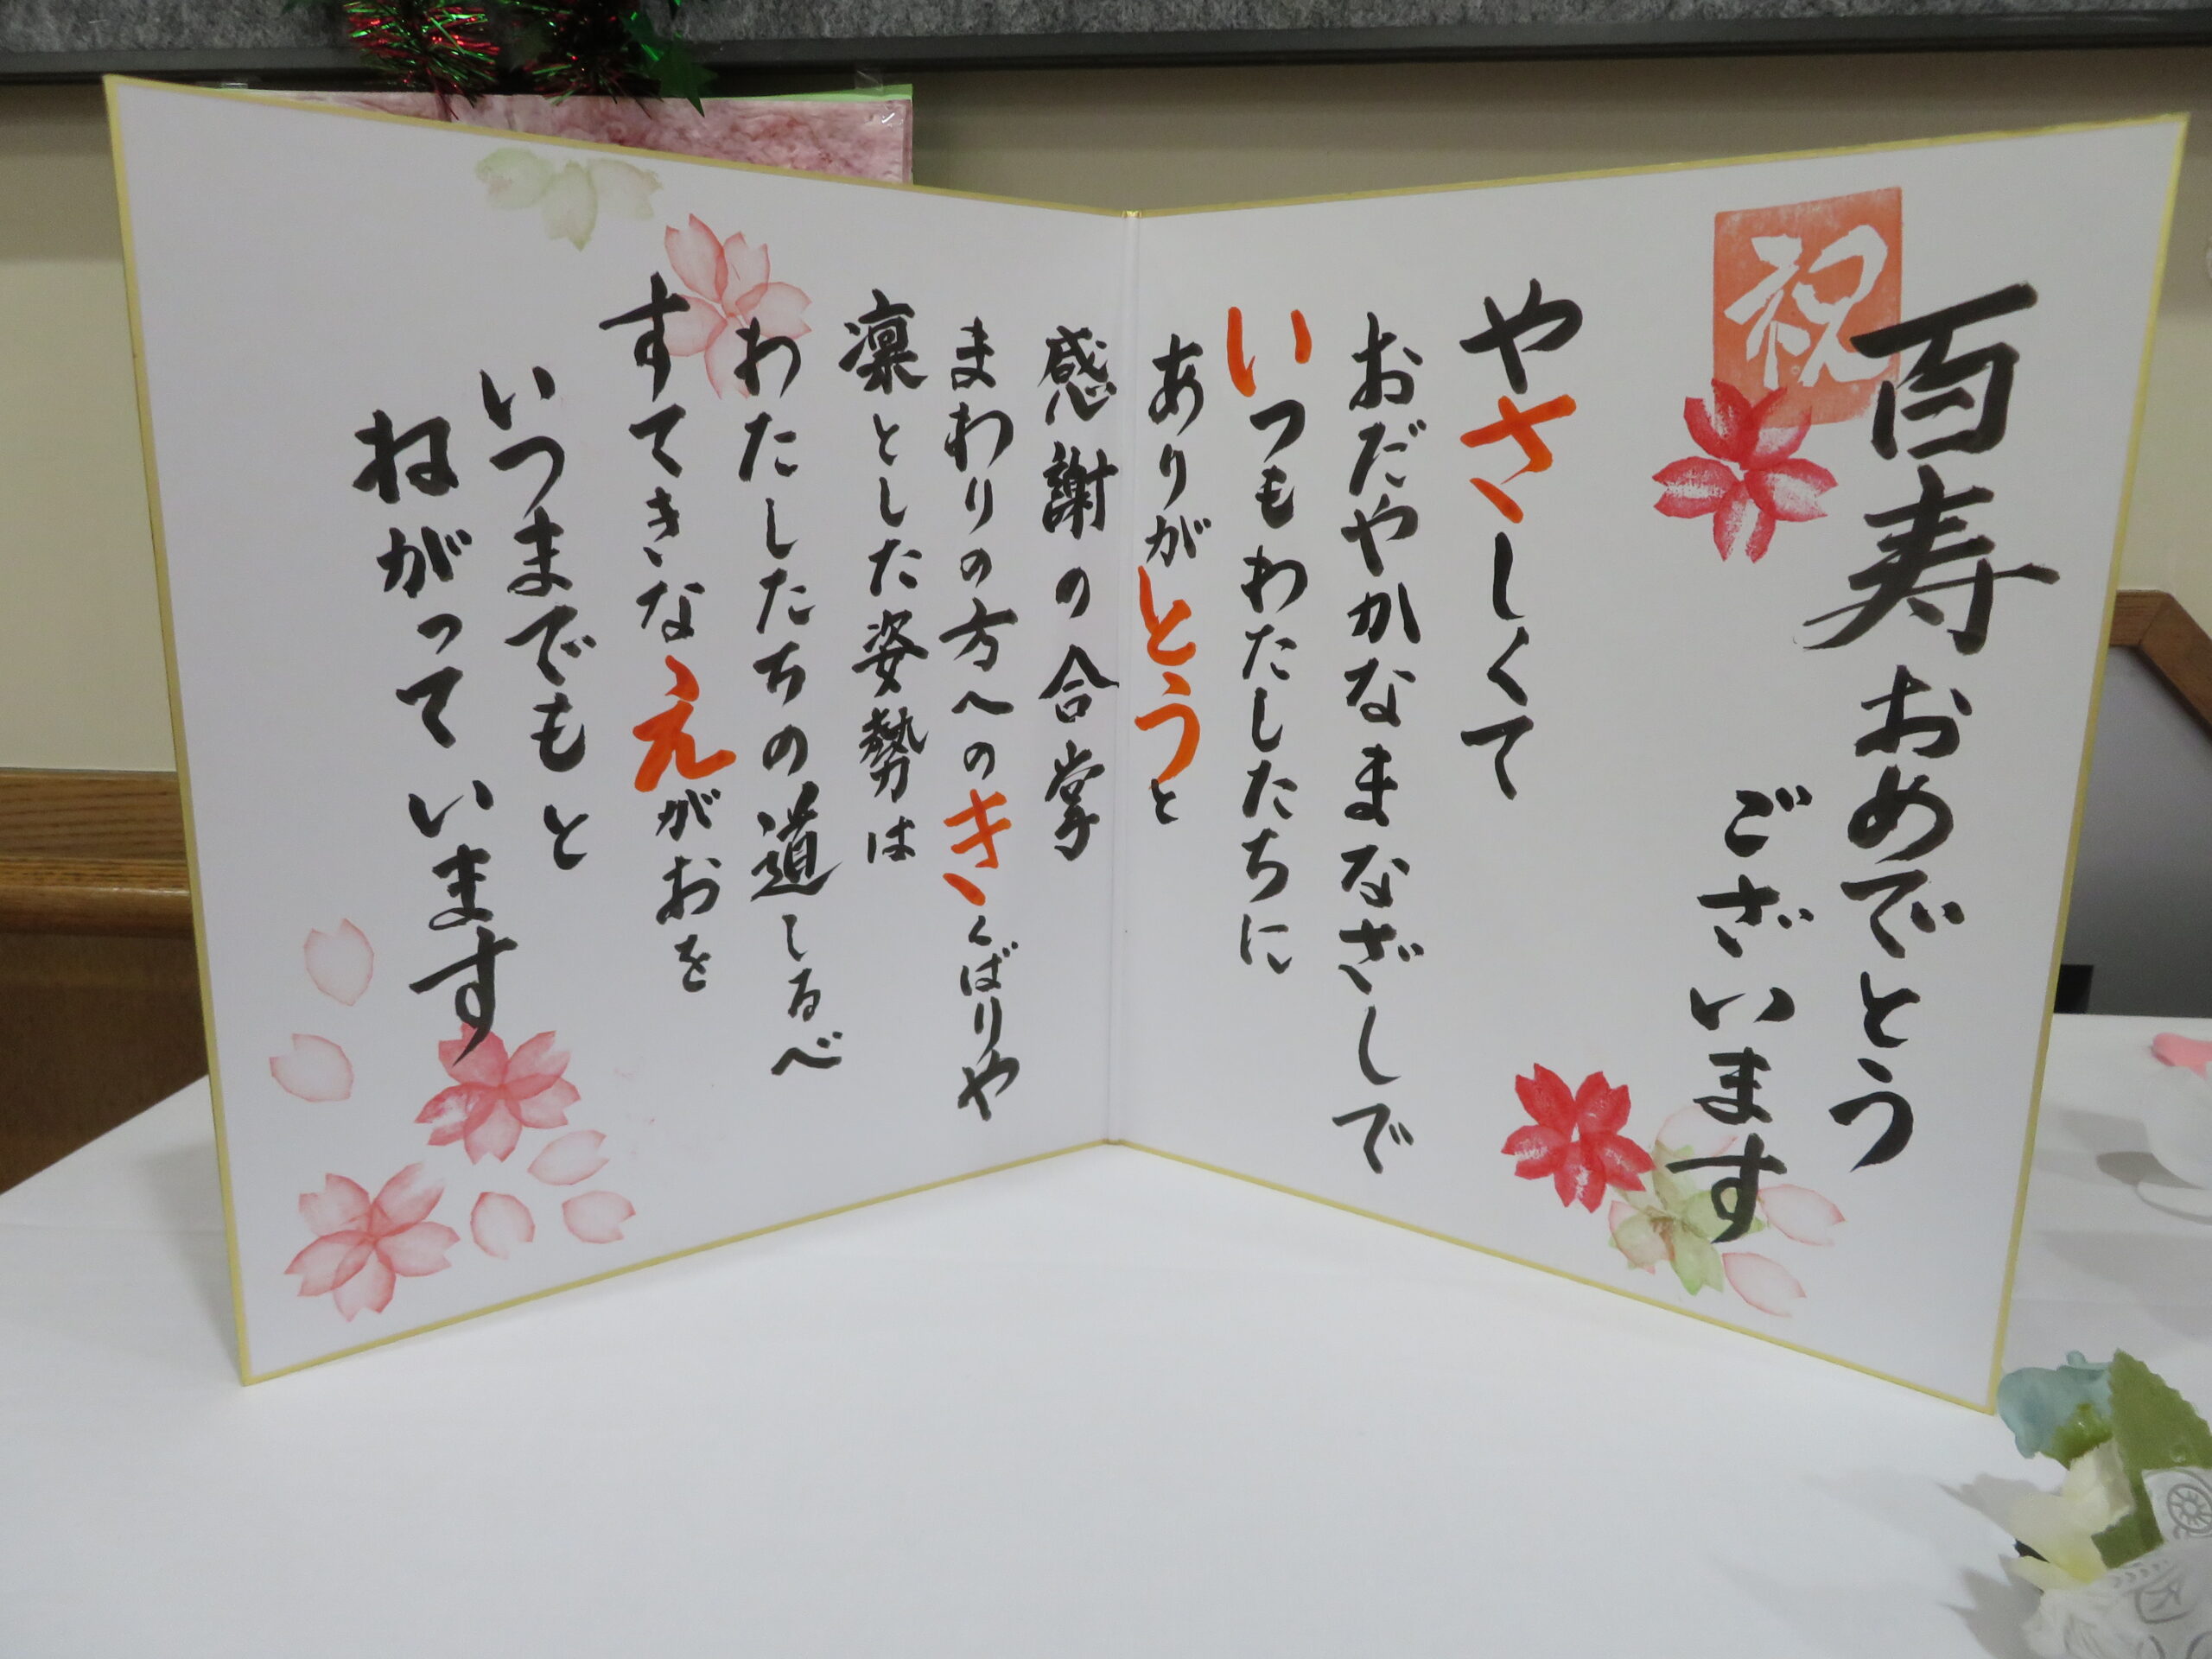 祝
百寿おめでとう
ございます
やさしくて
おだやかなまなざしで
いつもわたしたちに
ありがとうと
感謝の合掌
まわりの方へのきくばりや
凛とした姿勢は
わたしたちの道しるべ
すてきなえがおを
いつまでもと
ねがっています